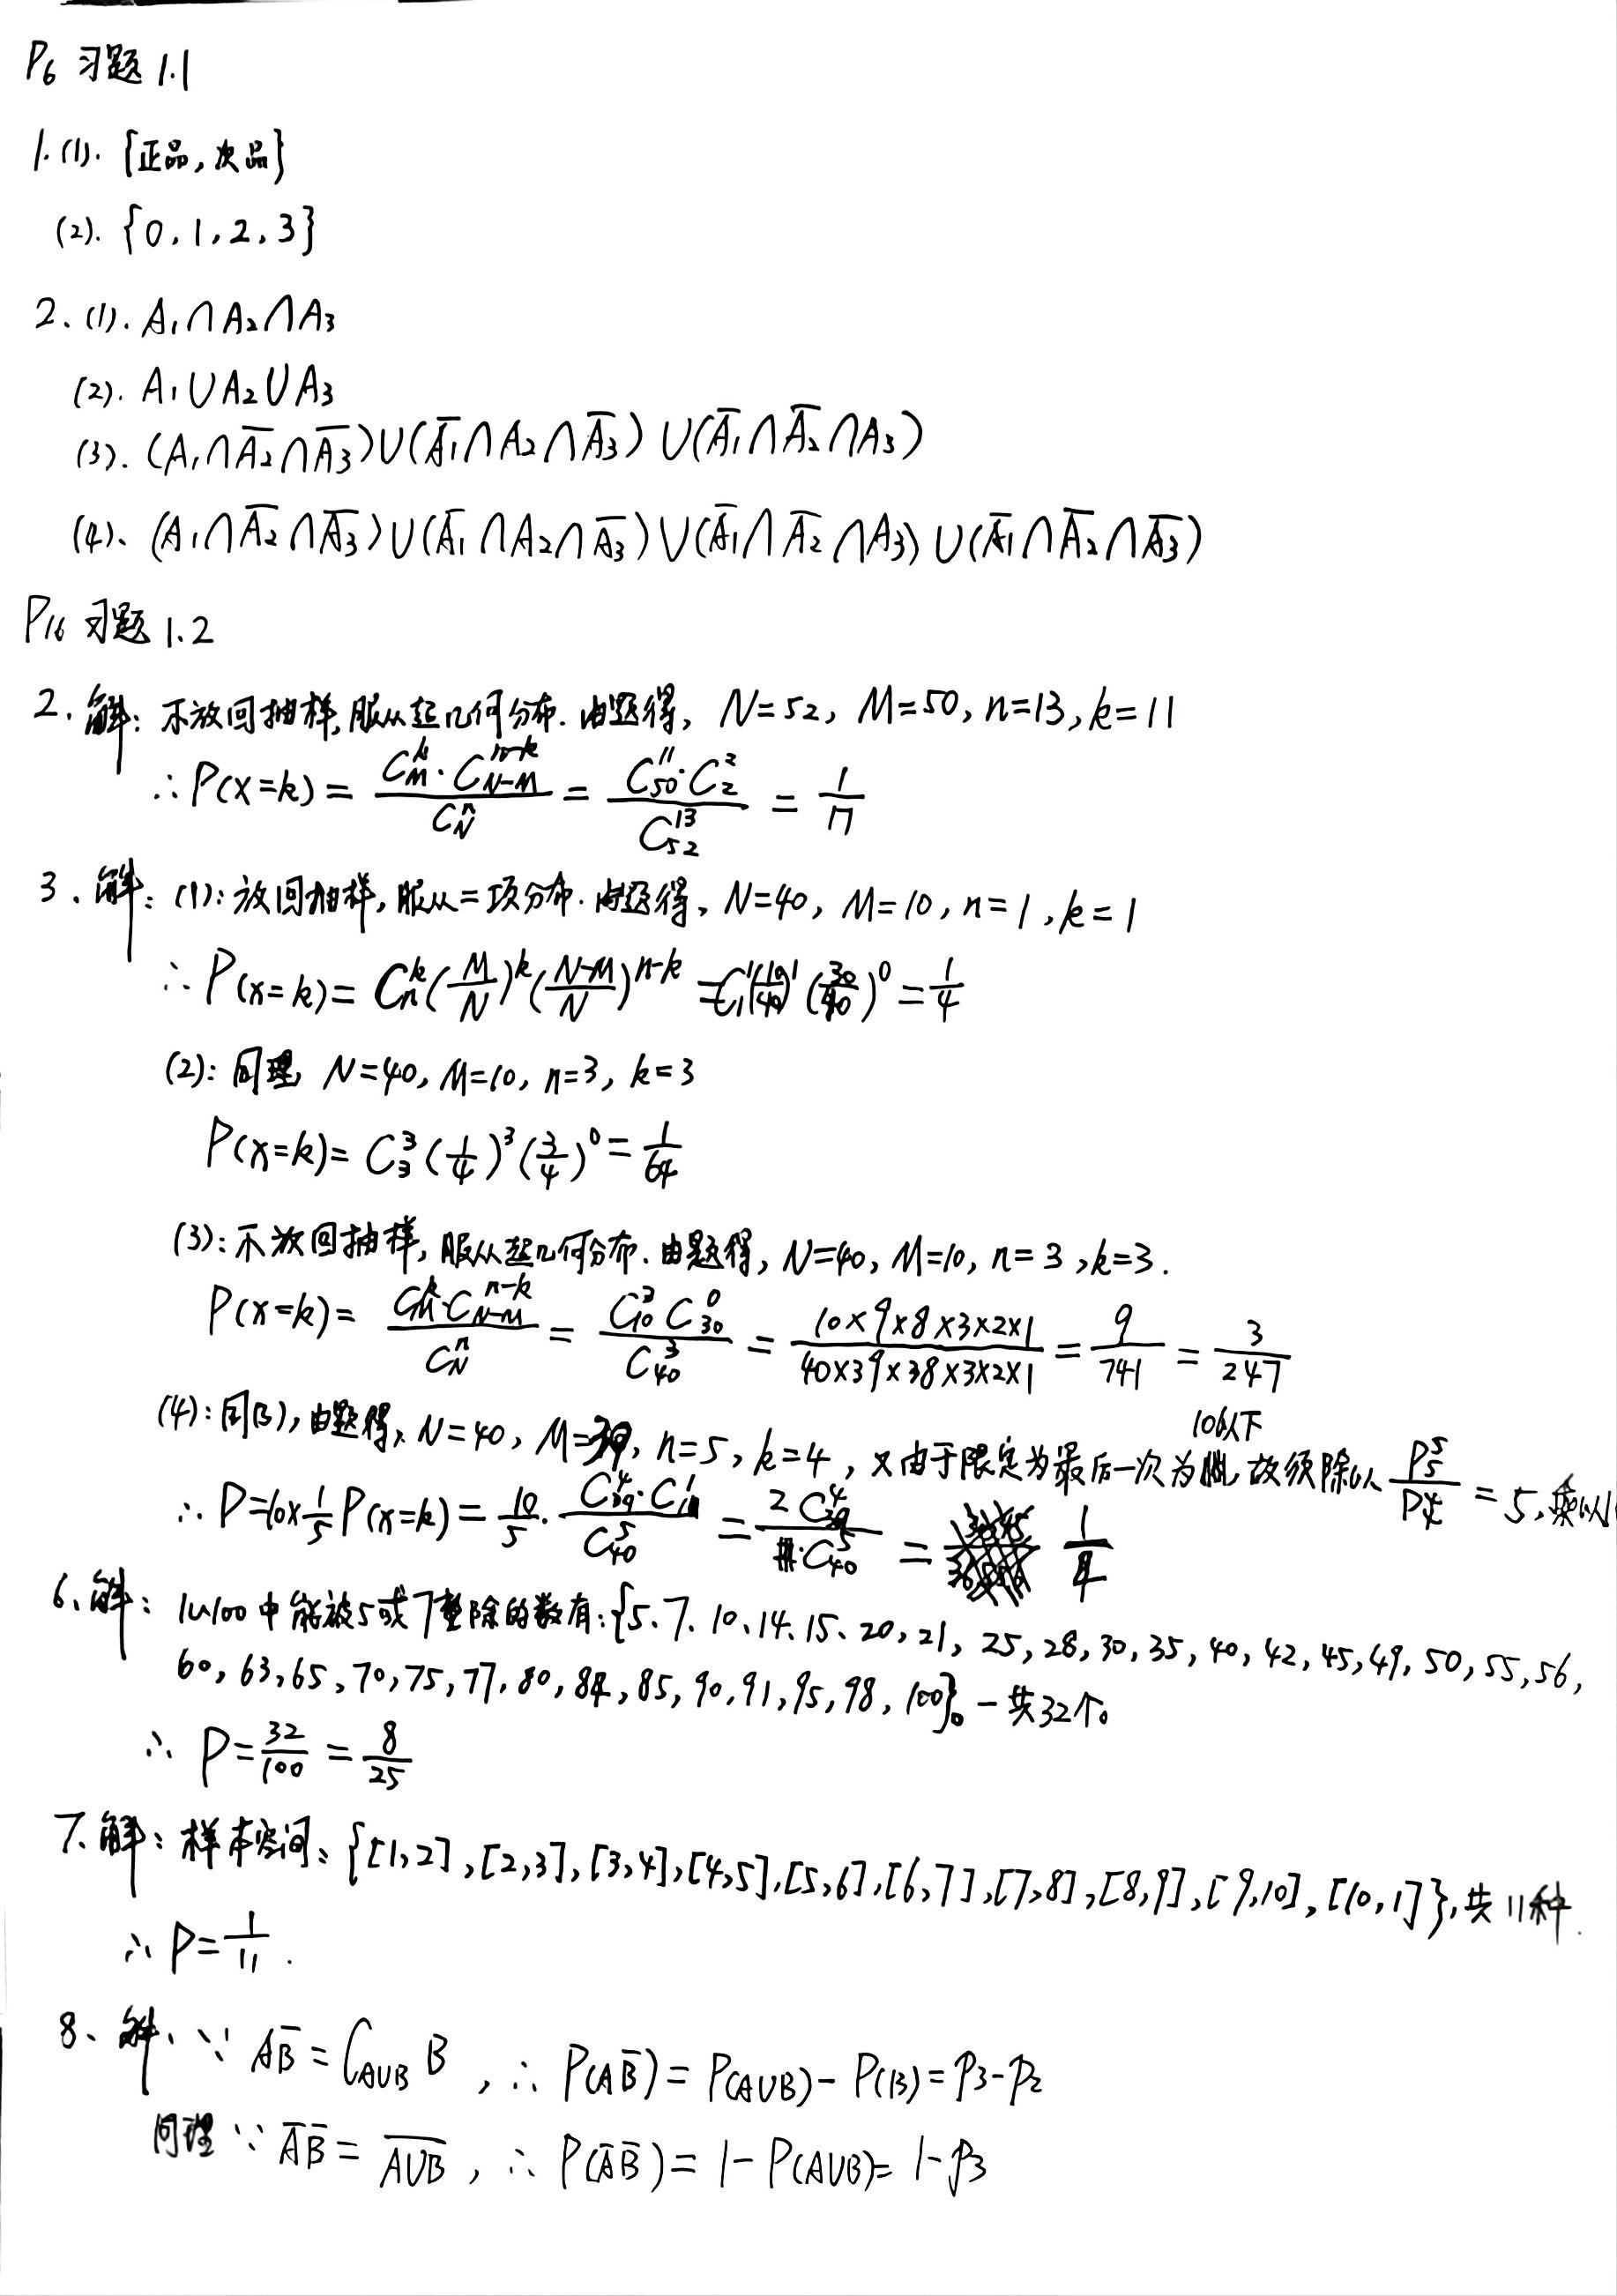 P₆ 习题 1.1
1.(1). {正品, 次品}
(2). {0, 1, 2, 3}
2.(1). A₁∩A₂∩A₃
(2). A₁∪A₂∪A₃
(3). (A₁∩A̅₂∩A̅₃)∪(A̅₁∩A₂∩A̅₃)∪(A̅₁∩A̅₂∩A₃)
(4). (A₁∩A̅₂∩A̅₃)∪(A̅₁∩A₂∩A̅₃)∪(A̅₁∩A̅₂∩A₃)∪(A̅₁∩A̅₂∩A̅₃)
P₁₆ 习题 1.2
2. 解: 不放回抽样, 服从超几何分布. 由题得, N=52, M=50, n=13, k=11
∴ P(X=k) = C_M^k·C_{N-M}^{n-k} / C_N^n = C_50^11·C_2^2 / C_52^13 = 1/17
3. 解: (1): 放回抽样, 服从二项分布. 由题得, N=40, M=10, n=1, k=1
∴ P(X=k) = C_n^k (M/N)^k ((N-M)/N)^{n-k} = C_1^1 (10/40)^1 (30/40)^0 = 1/4
(2): 同理, N=40, M=10, n=3, k=3
P(X=k) = C_3^3 (1/4)^3 (3/4)^0 = 1/64
(3): 不放回抽样, 服从超几何分布. 由题得, N=40, M=10, n=3, k=3.
P(X=k) = C_M^k·C_{N-M}^{n-k} / C_N^n = C_10^3 C_30^0 / C_40^3 = 10×9×8×3×2×1 / 40×39×38×3×2×1 = 9/741 = 3/247
(4): 同(3), 由题得, N=40, M=39, n=5, k=4, 又由于限定为最后一次为10以下, 故须除以 P_5^5 / P_4^4 = 5, 乘以
∴ P=10×1/5 P(X=k) = 10/5 · C_39^4·C_1^1 / C_40^5 = 2 C_39^4 / C_40^5 = 1/4
6. 解: 1~100中能被5或7整除的数有: {5, 7, 10, 14, 15, 20, 21, 25, 28, 30, 35, 40, 42, 45, 49, 50, 55, 56,
60, 63, 65, 70, 75, 77, 80, 84, 85, 90, 91, 95, 98, 100}。一共32个。
∴ P = 32/100 = 8/25
7. 解: 样本空间: {[1,2], [2,3], [3,4], [4,5], [5,6], [6,7], [7,8], [8,9], [9,10], [10,1]}, 共11种.
∴ P = 1/11.
8. 解: ∵ AB̅ = C_{A∪B} B, ∴ P(AB̅) = P(A∪B) - P(B) = p₃-p₂
同理 ∵ A̅B̅ = \overline{A∪B}, ∴ P(A̅B̅) = 1-P(A∪B) = 1-p₃